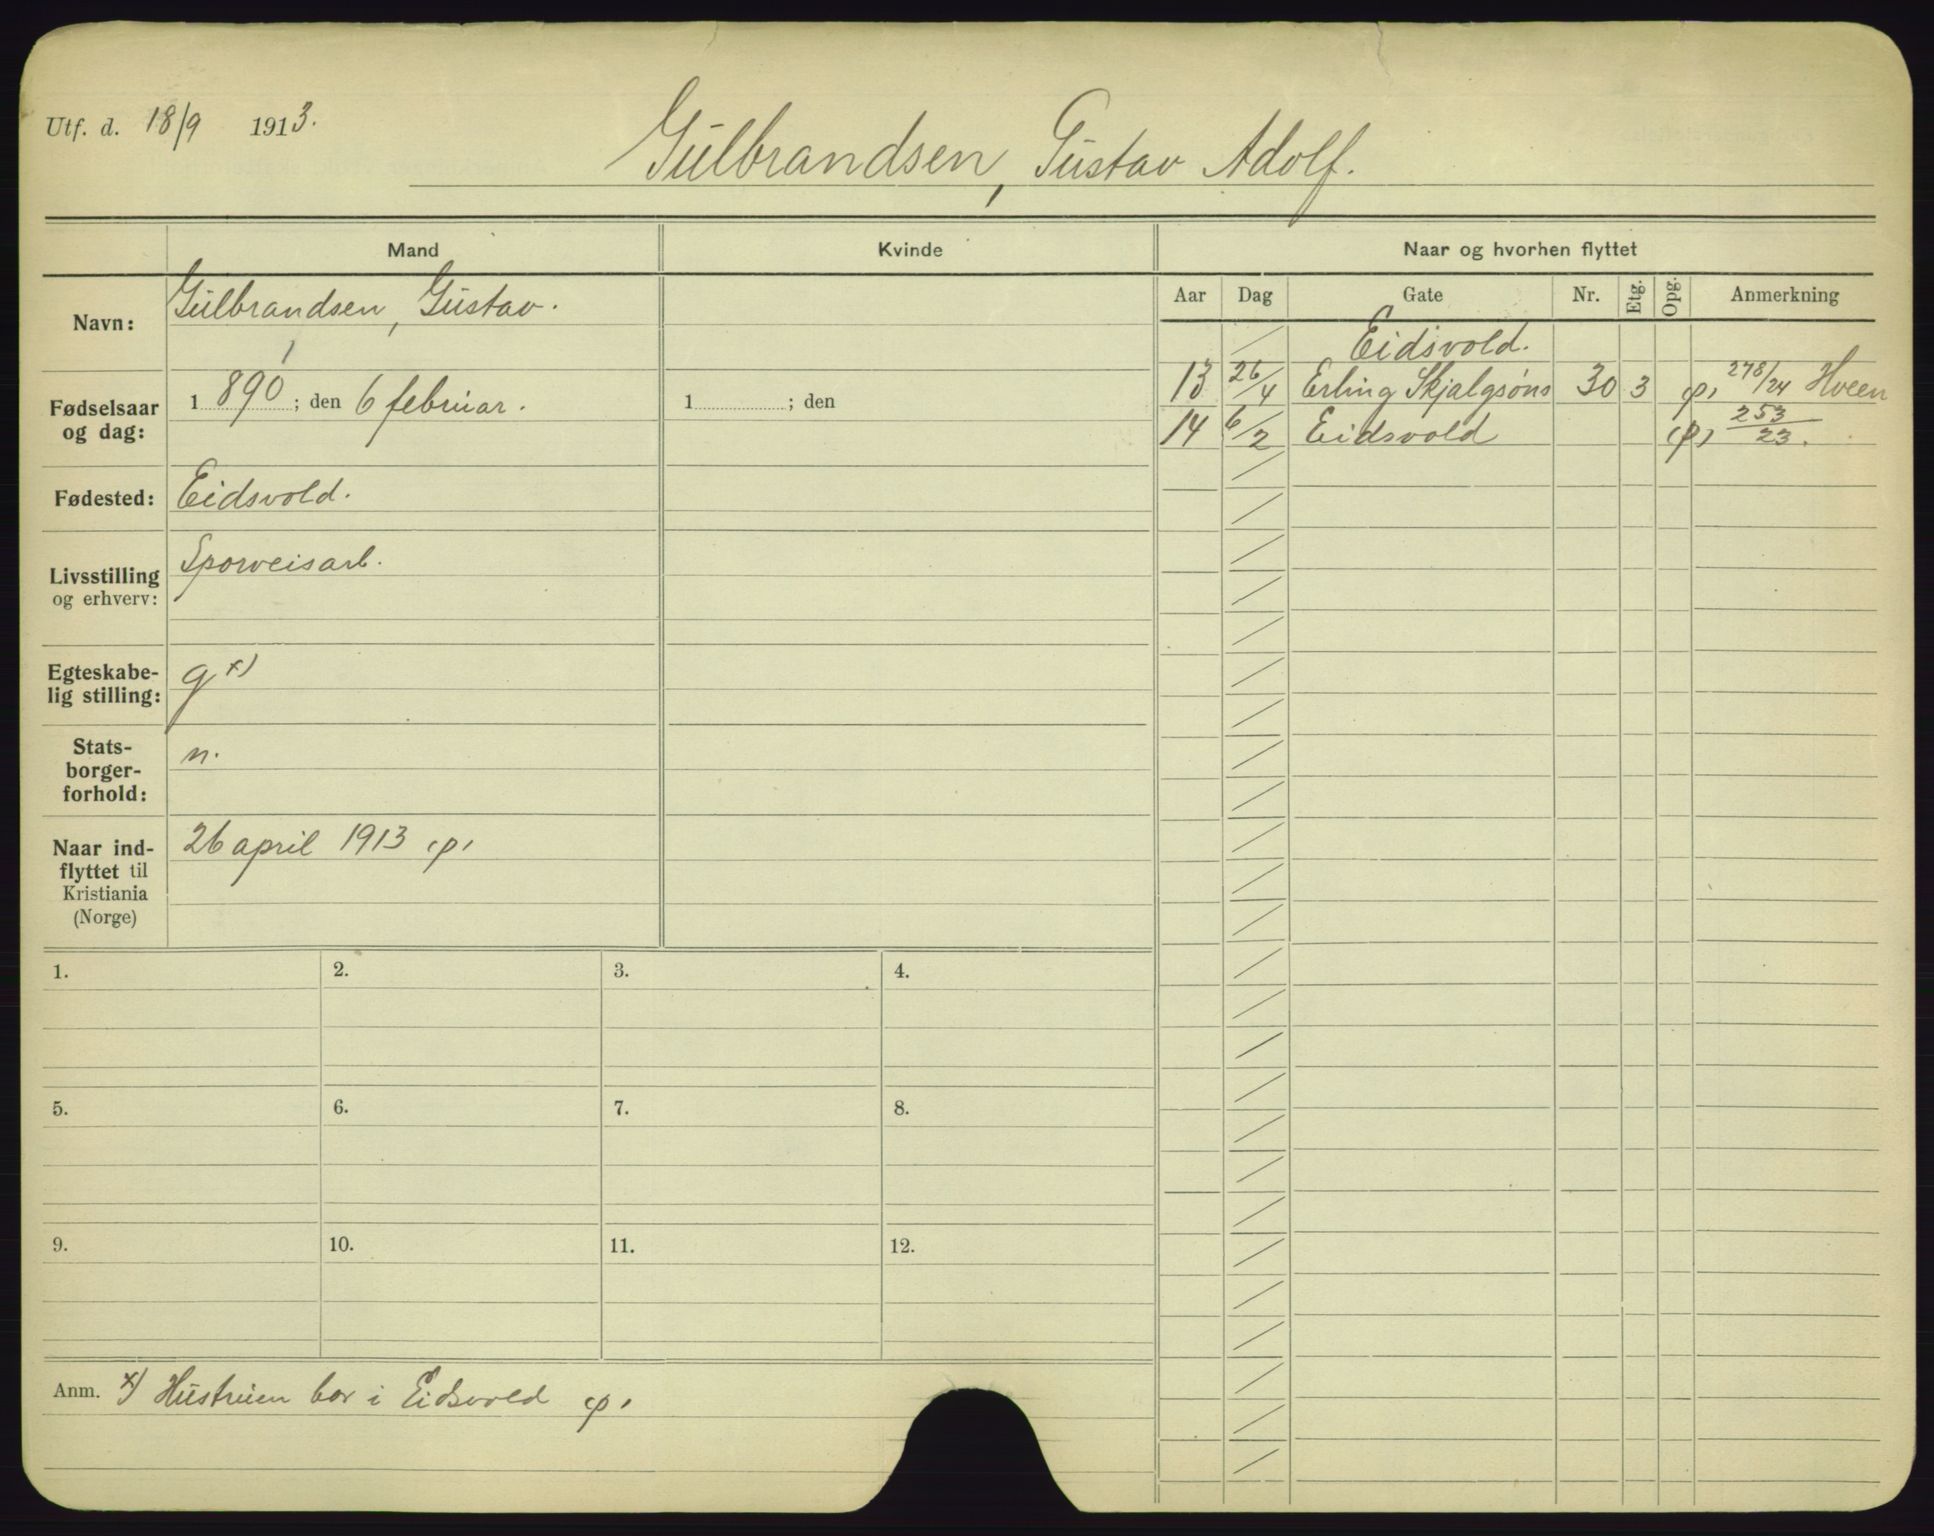 Utf. d. 18/9 1913.
Gulbrandsen, Gustav Adolf.
Mand
Kvinde
Naar og hvorhen flyttet
Navn: Gulbrandsen, Gustav.
Fødselsaar og dag: 1 890; den 6 februar.
1 ; den
Fødested: Eidsvold.
Livsstilling og erhverv: Sporveisarb.
Egteskabe-
lig stilling: g x)
Stats-
borger-
forhold: n.
Naar ind-
flyttet til
Kristiania
(Norge)
26 april 1913 (p)
Aar Dag Gate Nr. Etg. Opg. Anmerkning
Eidsvold.
13 26/4 Erling Skjalgsøns 30 3 (p) 278/24 Hveen
14 6/2 Eidsvold (p) 253/23.
1. 2. 3. 4.
5. 6. 7. 8.
9. 10. 11. 12.
Anm. x) Hustruen bor i Eidsvold (p)